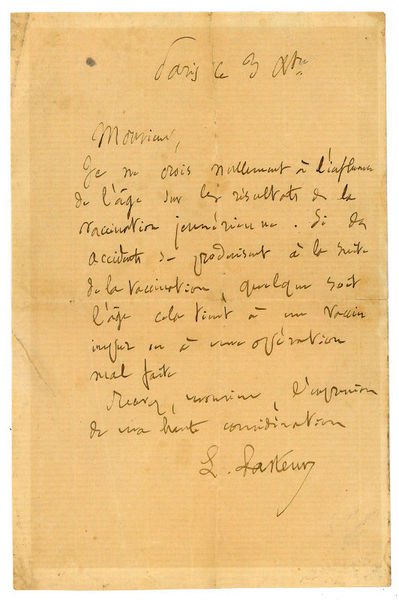 Paris ce 3 Xbre
Monsieur,
Je ne crois nullement à l'influence
de l'âge sur les résultats de la
vaccination jennérienne. Si des
accidents se produisent à la suite
de la vaccination, quelque soit
l'âge cela tient à un vaccin
impur ou à une opération
mal faite
Recevez, monsieur, l'expression
de ma haute considération
L. Pasteur